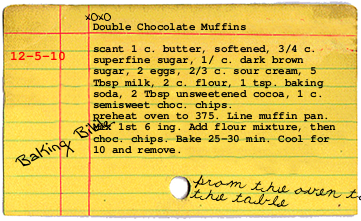 xoxo
Double Chocolate Muffins
12-5-10
scant 1 c. butter, softened, 3/4 c.
superfine sugar, 1/ c. dark brown
sugar, 2 eggs, 2/3 c. sour cream, 5
Tbsp milk, 2 c. flour, 1 tsp. baking
soda, 2 Tbsp unsweetened cocoa, 1 c.
semisweet choc. chips.
preheat oven to 375. Line muffin pan.
Mix 1st 6 ing. Add flour mixture, then
choc. chips. Bake 25-30 min. Cool for
10 and remove.
Baking Bible
from the oven to
the table